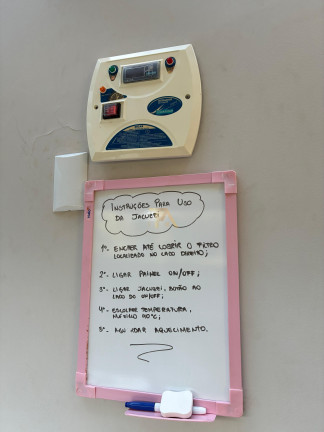 INSTRUÇÕES PARA USO
DA JACUZZI
1º- ENCHER ATÉ COBRIR O FILTRO
LOCALIZADO NO LADO DIREITO;
2º- LIGAR PAINEL ON/OFF;
3º- LIGAR JACUZZI, BOTÃO AO
LADO DO ON/OFF;
4º- ESCOLHER TEMPERATURA,
MÁXIMO 40ºC;
5º- AGUARDAR AQUECIMENTO.